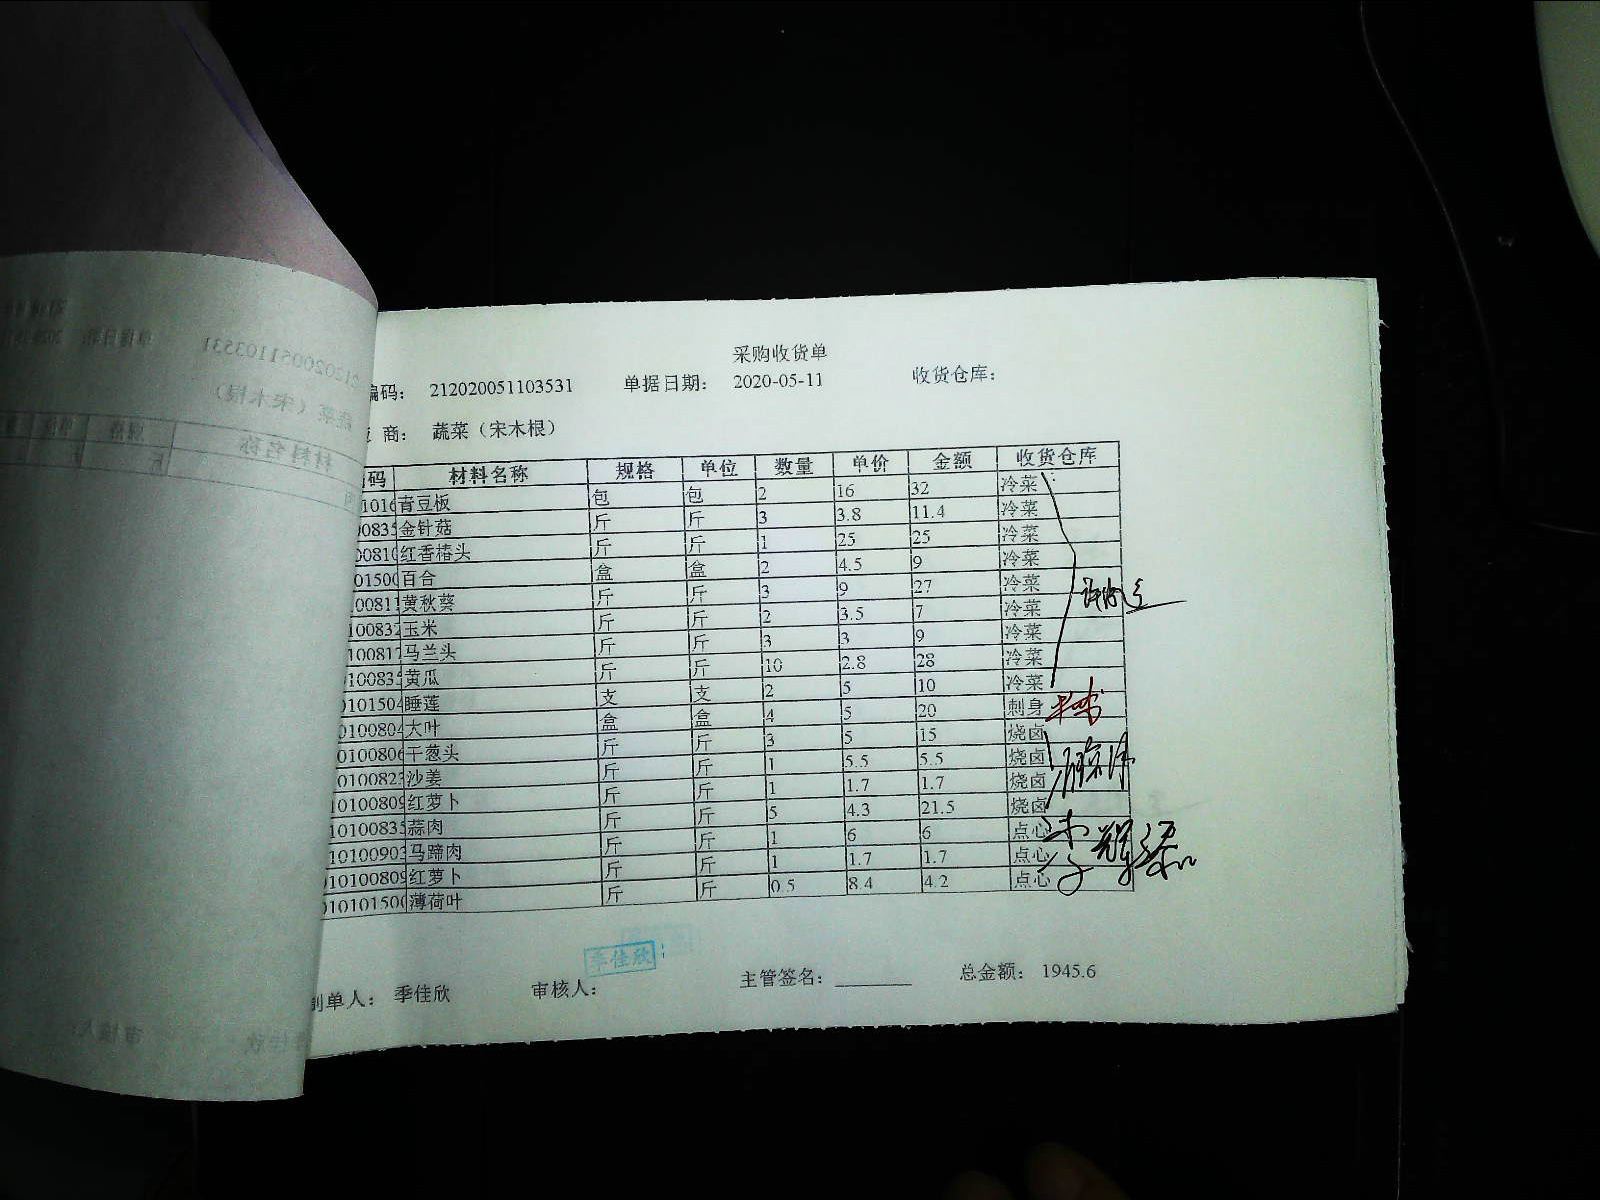 采购收货单
编码： 212020051103531 单据日期： 2020-05-11 收货仓库：
商： 蔬菜（宋木根）
码 材料名称 规格 单位 数量 单价 金额 收货仓库
1016 青豆板 包 包 2 16 32 冷菜
00835 金针菇 斤 斤 3 3.8 11.4 冷菜
00810 红香椿头 斤 斤 1 25 25 冷菜
01500 百合 盒 盒 2 4.5 9 冷菜
00811 黄秋葵 斤 斤 3 9 27 冷菜
100832 玉米 斤 斤 2 3.5 7 冷菜
100817 马兰头 斤 斤 3 3 9 冷菜
100835 黄瓜 斤 斤 10 2.8 28 冷菜
0101504 睡莲 支 支 2 5 10 冷菜
0100804 大叶 盒 盒 4 5 20 刺身
0100806 干葱头 斤 斤 3 5 15 烧卤
0100823 沙姜 斤 斤 1 5.5 5.5 烧卤
10100809 红萝卜 斤 斤 1 1.7 1.7 烧卤
10100835 蒜肉 斤 斤 5 4.3 21.5 烧卤
10100903 马蹄肉 斤 斤 1 6 6 点心
10100809 红萝卜 斤 斤 1 1.7 1.7 点心
010101500 薄荷叶 斤 斤 0.5 8.4 4.2 点心
季佳欣
制单人： 季佳欣 审核人： 主管签名： 总金额： 1945.6